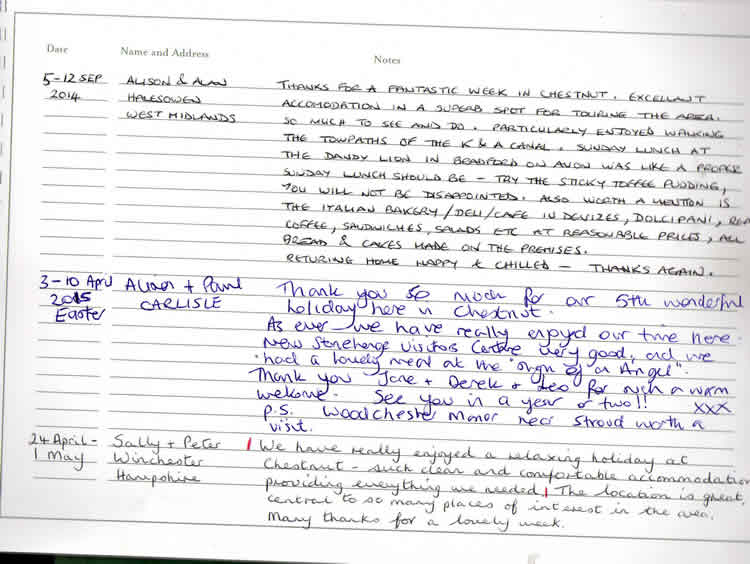 Date Name and Address Notes
5-12 SEP ALISON & ALAN THANKS FOR A FANTASTIC WEEK IN CHESTNUT. EXCELLANT
2014 HALESOWEN ACCOMODATION IN A SUPERB SPOT FOR TOURING THE AREA.
WEST MIDLANDS SO MUCH TO SEE AND DO. PARTICULARLY ENJOYED WALKING
THE TOWPATHS OF THE K & A CANAL. SUNDAY LUNCH AT
THE DANDY LION IN BRADFORD ON AVON WAS LIKE A PROPER
SUNDAY LUNCH SHOULD BE - TRY THE STICKY TOFFEE PUDDING,
YOU WILL NOT BE DISAPPOINTED. ALSO WORTH A MENTION IS
THE ITALIAN BAKERY/DELI/CAFE IN DEVIZES, DOLCIPANI,
COFFEE, SANDWICHES, SALADS ETC AT REASONABLE PRICES, ALL
BREAD & CAKES MADE ON THE PREMISES.
RETURING HOME HAPPY & CHILLED - THANKS AGAIN.
3-10 April Alison + Paul Thank you so much for our 5th wonderful
2015 CARLISLE holiday here in Chestnut.
Easter As ever we have really enjoyed our time here.
New Stonehenge Visitors Centre very good, and we
had a lovely meal at the "sign of an Angel".
Thank you Jane + Derek + Leo for such a warm
welcome. See you in a year or two!! xxx
p.s. Woodchester Manor near Stroud worth a
visit.
24 April - Sally + Peter We have really enjoyed a relaxing holiday at
1 May Winchester Chestnut - such clean and comfortable accommodation
Hampshire providing everything we needed. The location is great,
central to so many places of interest in the area.
Many thanks for a lovely week.